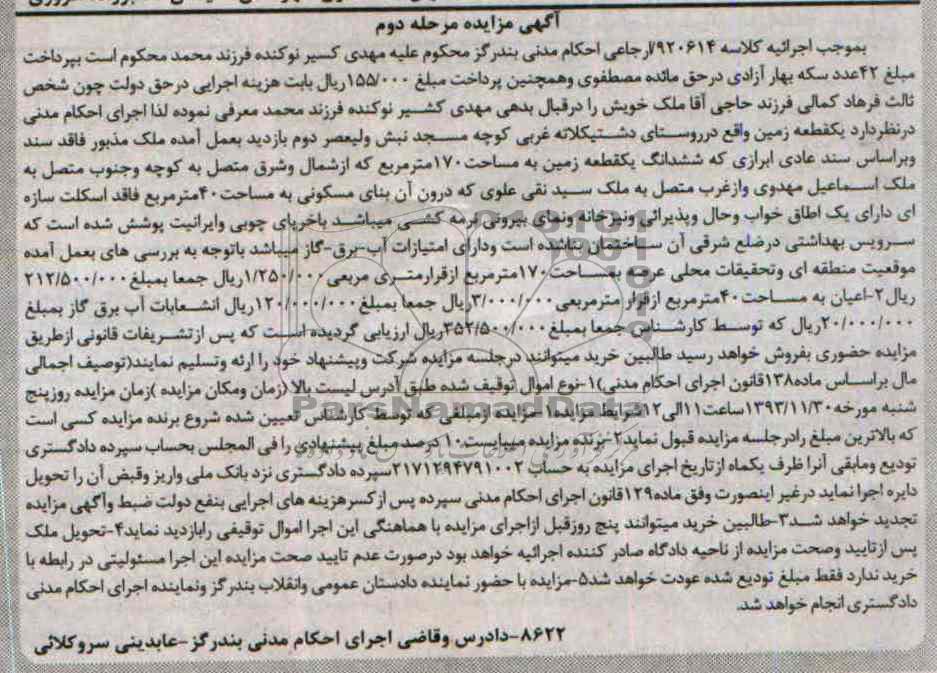 آگهی مزایده مرحله دوم
بموجب اجرائیه کلاسه ۹۲۰۶۱۴/ارجاعی احکام مدنی بندرگز محکوم علیه مهدی کسیر نوکنده فرزند محمد محکوم است بپرداخت
مبلغ ۴۲عدد سکه بهار آزادی درحق مائده مصطفوی وهمچنین پرداخت مبلغ ۱۵۵/۰۰۰ریال بابت هزینه اجرایی درحق دولت چون شخص
ثالث فرهاد کمالی فرزند حاجی آقا ملک خویش را درقبال بدهی مهدی کشیر نوکنده فرزند محمد معرفی نموده لذا اجرای احکام مدنی
درنظردارد یکقطعه زمین واقع درروستای دشتیکلاته غربی کوچه مسجد نبش ولیعصر دوم بازدید بعمل آمده ملک مذبور فاقد سند
وبراساس سند عادی ابرازی که ششدانگ یکقطعه زمین به مساحت۱۷۰مترمربع که ازشمال وشرق متصل به کوچه وجنوب متصل به
ملک اسماعیل مهدوی وازغرب متصل به ملک سید نقی علوی که درون آن بنای مسکونی به مساحت۴۰مترمربع فاقد اسکلت سازه
ای دارای یک اطاق خواب وحال وپذیرائی ونیزخانه ونمای بیرونی نرمه کشی میباشد باخرپای چوبی وایرانیت پوشش شده است که
سرویس بهداشتی درضلع شرقی آن ساختمان بناشده است ودارای امتیازات آب-برق-گاز میباشد باتوجه به بررسی های بعمل آمده
موقعیت منطقه ای وتحقیقات محلی عرصه بمساحت۱۷۰مترمربع ازقرارمتری مربعی ۱/۲۵۰/۰۰۰ریال جمعا بمبلغ۲۱۲/۵۰۰/۰۰۰
ریال۲-اعیان به مساحت۴۰مترمربع ازقرار مترمربعی۳/۰۰۰/۰۰۰ریال جمعا بمبلغ۱۲۰/۰۰۰/۰۰۰ریال انشعابات آب برق گاز بمبلغ
۲۰/۰۰۰/۰۰۰ریال که توسط کارشناس جمعا بمبلغ۳۵۲/۵۰۰/۰۰۰ریال ارزیابی گردیده است که پس ازتشریفات قانونی ازطریق
مزایده حضوری بفروش خواهد رسید طالبین خرید میتوانند درجلسه مزایده شرکت وپیشنهاد خود را ارئه وتسلیم نمایند(توصیف اجمالی
مال براساس ماده۱۳۸قانون اجرای احکام مدنی)۱-نوع اموال توقیف شده طبق آدرس لیست بالا (زمان ومکان مزایده )زمان مزایده روزپنج
شنبه مورخه۱۳۹۳/۱۱/۳۰ساعت۱۱الی۱۲شرایط مزایده۱-مزایده ازمبلغی که توسط کارشناس تعیین شده شروع برنده مزایده کسی است
که بالاترین مبلغ رادرجلسه مزایده قبول نماید۲-برنده مزایده میبایست۱۰ درصد مبلغ پیشنهادی را فی المجلس بحساب سپرده دادگستری
تودیع ومابقی آنرا ظرف یکماه ازتاریخ اجرای مزایده به حساب ۲۱۷۱۲۹۴۷۹۱۰۰۲سپرده دادگستری نزد بانک ملی واریز وقبض آن را تحویل
دایره اجرا نماید درغیر اینصورت وفق ماده۱۲۹قانون اجرای احکام مدنی سپرده پس ازکسرهزینه های اجرایی بنفع دولت ضبط وآگهی مزایده
تجدید خواهد شد۳-طالبین خرید میتوانند پنج روزقبل ازاجرای مزایده با هماهنگی این اجرا اموال توقیفی رابازدید نماید۴-تحویل ملک
پس ازتایید وصحت مزایده از ناحیه دادگاه صادر کننده اجرائیه خواهد بود درصورت عدم تایید صحت مزایده این اجرا مسئولیتی در رابطه با
خرید ندارد فقط مبلغ تودیع شده عودت خواهد شد۵-مزایده با حضور نماینده دادستان عمومی وانقلاب بندرگز ونماینده اجرای احکام مدنی
دادگستری انجام خواهد شد.
۸۶۲۲-دادرس وقاضی اجرای احکام مدنی بندرگز-عابدینی سروکلائی
ParsNamadData